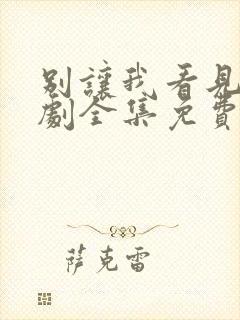 別讓我看見
劇全集免費
萨克雷